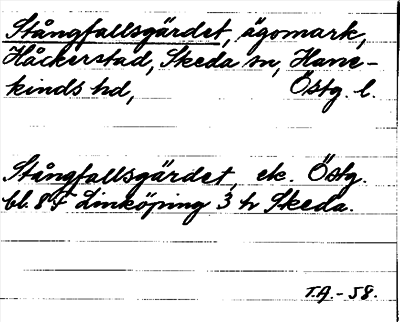 Stångfallsgärdet, ägomark,
Håckerstad, Skeda sn, Hane-
kinds hd, Östg. l.
Stångfallsgärdet, ek. Östg.
bl. 8 F Linköping 3 h Skeda.
T.A.-58.